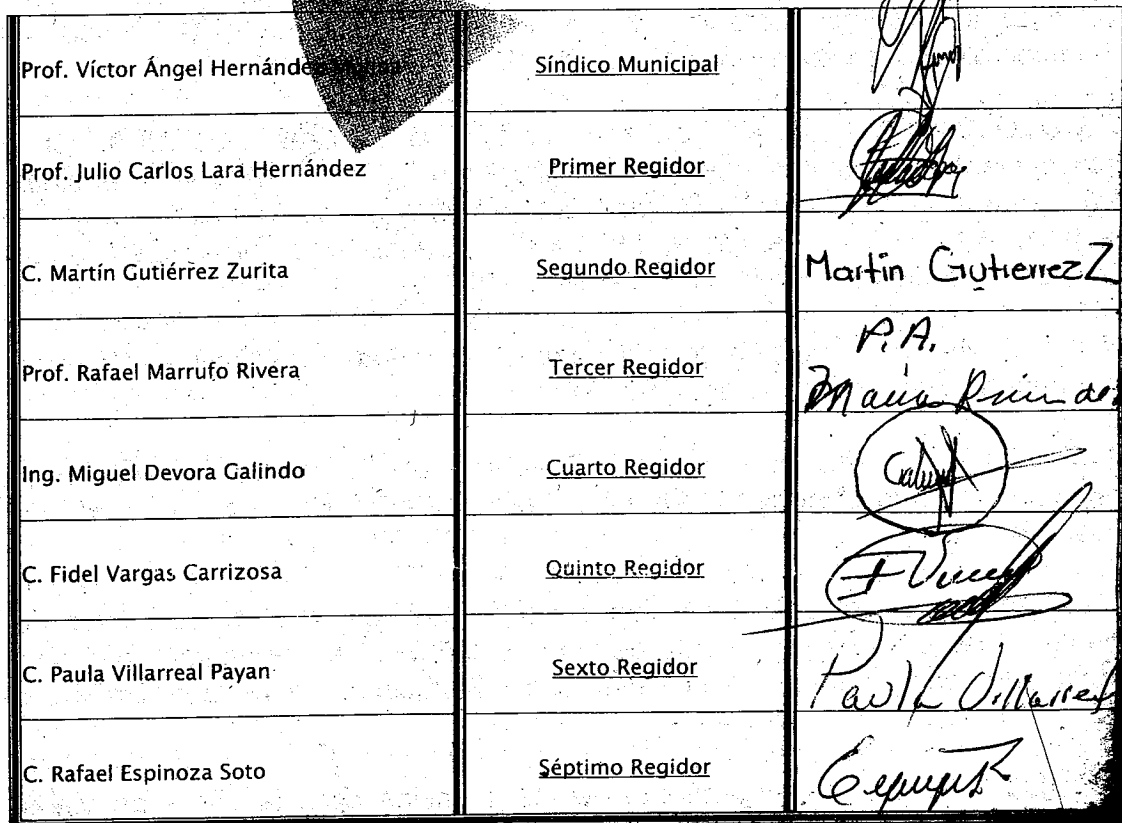 Prof. Víctor Ángel Hernández Síndico Municipal
Prof. Julio Carlos Lara Hernández Primer Regidor
C. Martín Gutiérrez Zurita Segundo Regidor Martín Gutierrez Z
Prof. Rafael Marrufo Rivera Tercer Regidor P.A.
Ing. Miguel Devora Galindo Cuarto Regidor
C. Fidel Vargas Carrizosa Quinto Regidor
C. Paula Villarreal Payan Sexto Regidor Paula Villarreal
C. Rafael Espinoza Soto Séptimo Regidor